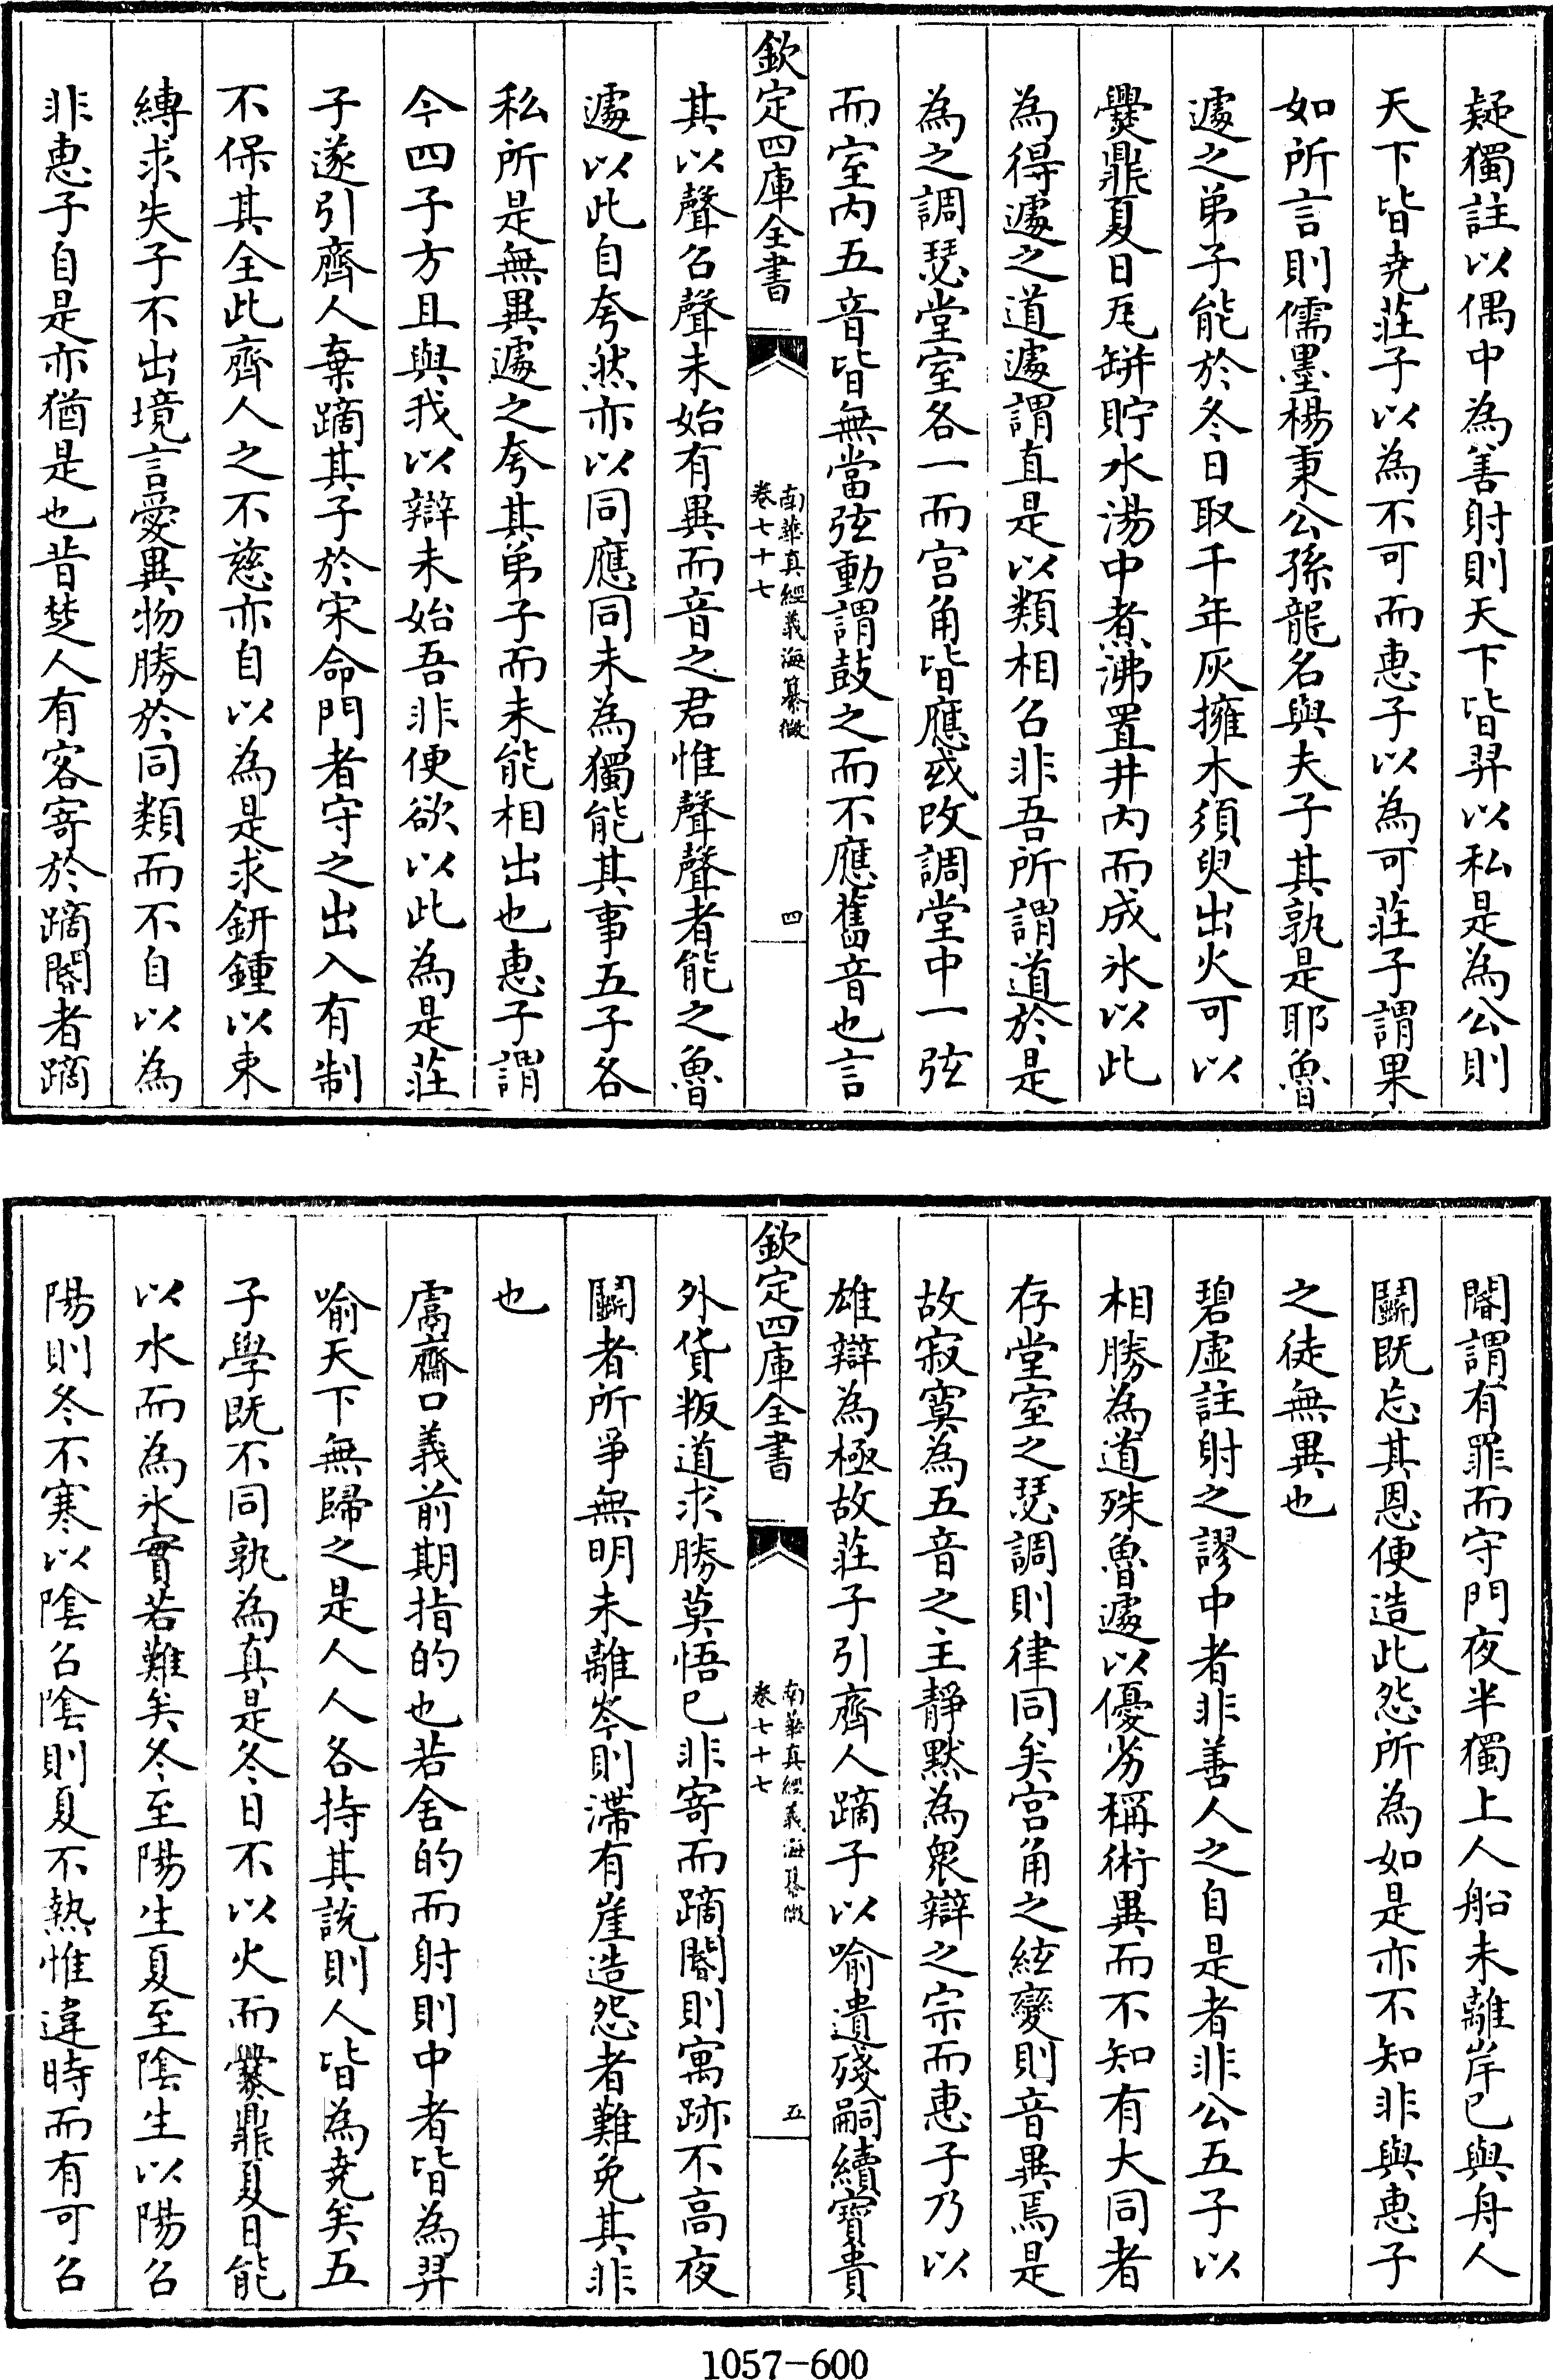 疑獨註以偶中為善射則天下皆羿以私是為公則
天下皆堯莊子以為不可而惠子以為可莊子謂果
如所言則儒墨楊秉公孫龍名與夫子其孰是耶魯
遽之弟子能於冬日取千年灰擁木須臾出火可以
爨鼎夏日瓦缾貯水湯中煮沸置井内而成氷以此
為得遽之道遽謂直是以類相召非吾所謂道於是
為之調瑟堂室各一而宫角皆應或改調堂中一弦
而室内五音皆無當弦動謂鼓之而不應舊音也言
欽定四庫全書
南華真經義海纂微
卷七十七
四
其以聲召聲未始有異而音之君惟聲聲者能之魯
遽以此自夸然亦以同應同未為獨能其事五子各
私所是無異遽之夸其弟子而未能相出也惠子謂
今四子方且與我以辯未始吾非便欲以此為是莊
子遂引齊人棄蹢其子於宋命門者守之出入有制
不保其全此齊人之不慈亦自以為是求鈃鍾以束
縳求失子不出境言愛異物勝於同類而不自以為
非惠子自是亦猶是也昔楚人有客寄於蹢閽者蹢
閽謂有罪而守門夜半獨上人船未離岸已與舟人
鬬既忘其恩便造此怨所為如是亦不知非與惠子
之徒無異也
碧虚註射之謬中者非善人之自是者非公五子以
相勝為道殊魯遽以優劣稱術異而不知有大同者
存堂室之瑟調則律同矣宫角之絃變則音異焉是
故寂寞為五音之主靜黙為衆辯之宗而惠子乃以
雄辯為極故莊子引齊人蹢子以喻遺殘嗣續寶貴
欽定四庫全書
南華真經義海纂微
卷七十七
五
外貨叛道求勝莫悟已非寄而蹢閽則寓跡不髙夜
鬬者所爭無明未離岑則滯有崖造怨者難免其非
也
鬳齋口義前期指的也若舍的而射則中者皆為羿
喻天下無歸之是人人各持其說則人皆為堯矣五
子學既不同孰為真是冬日不以火而爨鼎夏日能
以水而為氷實若難矣冬至陽生夏至陰生以陽召
陽則冬不寒以陰召陰則夏不熱惟違時而有可召
1057-600